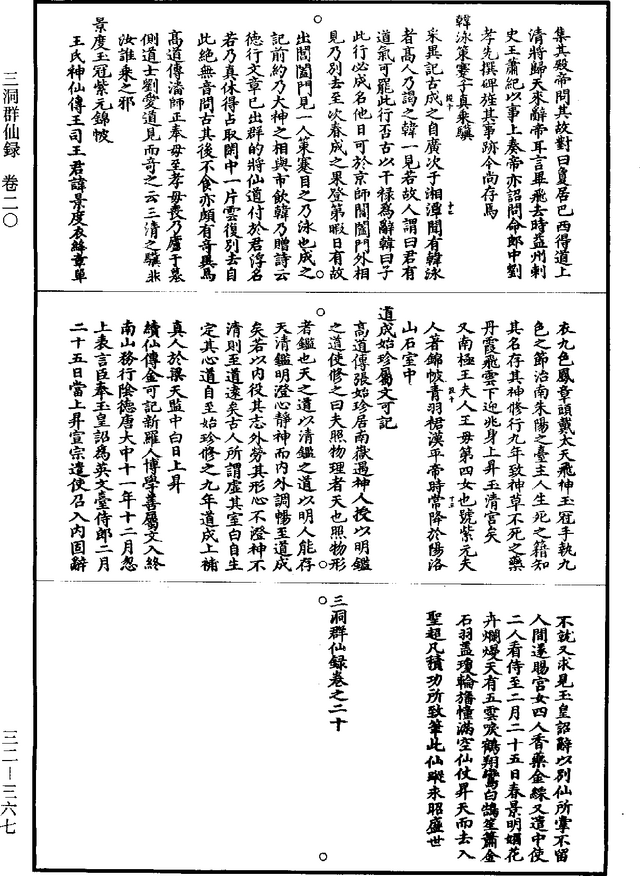 集其殿帝問其故對曰夐居巴西得道上
清將歸天來辭帝耳言畢飛去時益州刺
史王蕭紀以事上奏帝亦詔問命郎中劉
孝先撰碑旌其事跡今尚存焉
韓泳策蹇子真乘驥
采異記古成之自廣次于湘潭間有韓泳
者高人乃謁之韓一見若故人謂曰君有
道氣可罷此行否古以干祿為辭韓曰子
此行必成名他日可於京師閶闔門外相
見乃別去至次春成之果登第暇日有故
出閶闔門見一人策蹇目之乃泳也成之
記前約乃大神之相與市飲韓乃贈詩云
德行文章已出群的將仙道付於君浮名
若乃真休得占取閑中一片雲復別去自
此絕無音問古其後不食亦頗有奇異焉
高道傳潘師正奉母至孝母喪乃廬于墓
側道士劉愛道見而奇之云三清之驥非
汝誰乘之邪
景度玉冠紫元錦帔
王氏神仙傳王司王君諱景度衣絳章單
衣九色鳳章頭戴太天飛神玉冠手執九
色之節治南朱陽之臺主人生死之籍知
其名存其神修行九年致神草不死之藥
丹霞飛雲下迎兆身上昇玉清宮矣
又南極王夫人王母第四女也號紫元夫
人著錦帔青羽裙漢平帝時常降於陽洛
山石室中
道成始珍屬文可記
高道傳張始珍居南嶽遇神人授以明鑑
之道使修之曰夫照物理者天也照物形
者鑑也天之道以清鑑之道以明人能存
天清鑑明澄心靜神而內外調暢至道成
矣若以內役其志外勞其形心不澄神不
清則至道遠矣古人所謂虛其室白自生
定其心道自至始珍修之九年道成上補
真人於梁天監中白日上昇
續仙傳金可記新羅人博學善屬文入終
南山務行陰德唐大中十一年十二月忽
上表言臣奉玉皇詔為英文臺侍郎二月
二十五日當上昇宣宗遣使召入內固辭
不就又求見玉皇詔辭以別仙所掌不留
人間遂賜宮女四人香藥金綵又遣中使
二人看侍至二月二十五日春景明媚花
卉爛熳天有五雲唳鶴翔鸞白鵠笙簫金
石羽蓋瓊輪旛幢滿空仙仗昇天而去入
聖超凡積功所致筆此仙蹤永昭盛世
三洞群仙録卷之二十
三洞群仙録 卷二〇
三二—三六七